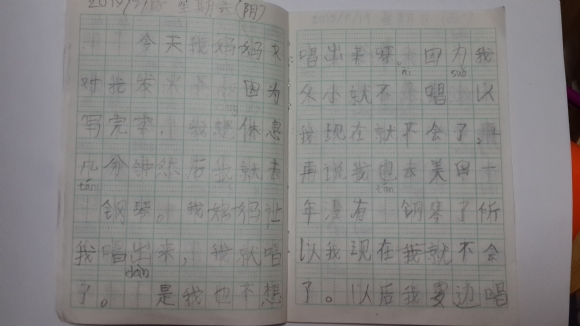 星期六(阴)
今天我妈妈又
对我发火 因为
写完字，我想休息
几分钟然后我就去
tán
钢琴。我妈妈让
我唱出来，我就唱
dàn
了。 是我也不想
唱出来呀。因为我
ài
从小就不 唱 以
我现在就不会了。
再说我也来美国一
tán
年没有 钢琴了所
以我现在我就不会
了。以后我要边唱